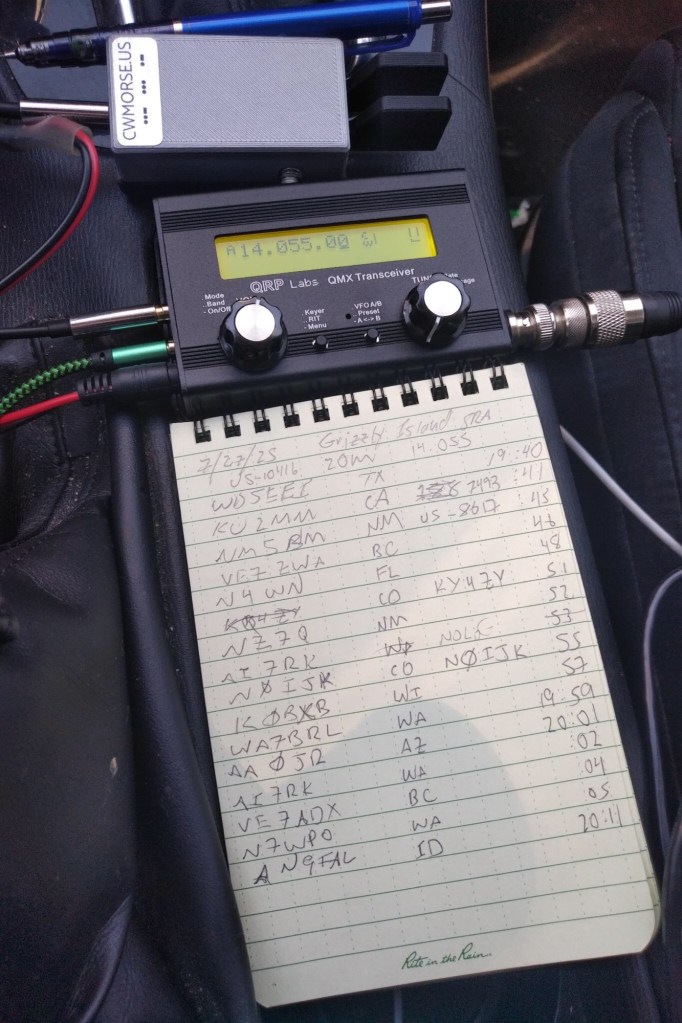 CWMORSE.US
A14.055.00 CW
QRP Labs QMX Transceiver
Mode
Band
- On/Off
TUNE
Keyer
RIT
- Menu
VFO A/B
Preset
- A <-> B
7/27/25 Grizzly Island SRA
US-10416 20m 14.055
WD5EEE TX 19:40
KU2MM CA 2493 :41
NM5BM NM US-8617 :45
VE7ZWA BC 46
N4WN FL 48
CO KY4ZY 51
NZ7Q NM 52
AI7RK 53
NØIJK CO NØIJK 55
KØBXB WI 57
WA7BRL WA 19 59
AAØJR AZ 20:01
AI7RK WA :02
VE7ADX BC 04
N7WPO WA 05
N9FAL ID 20:11
Rite in the Rain